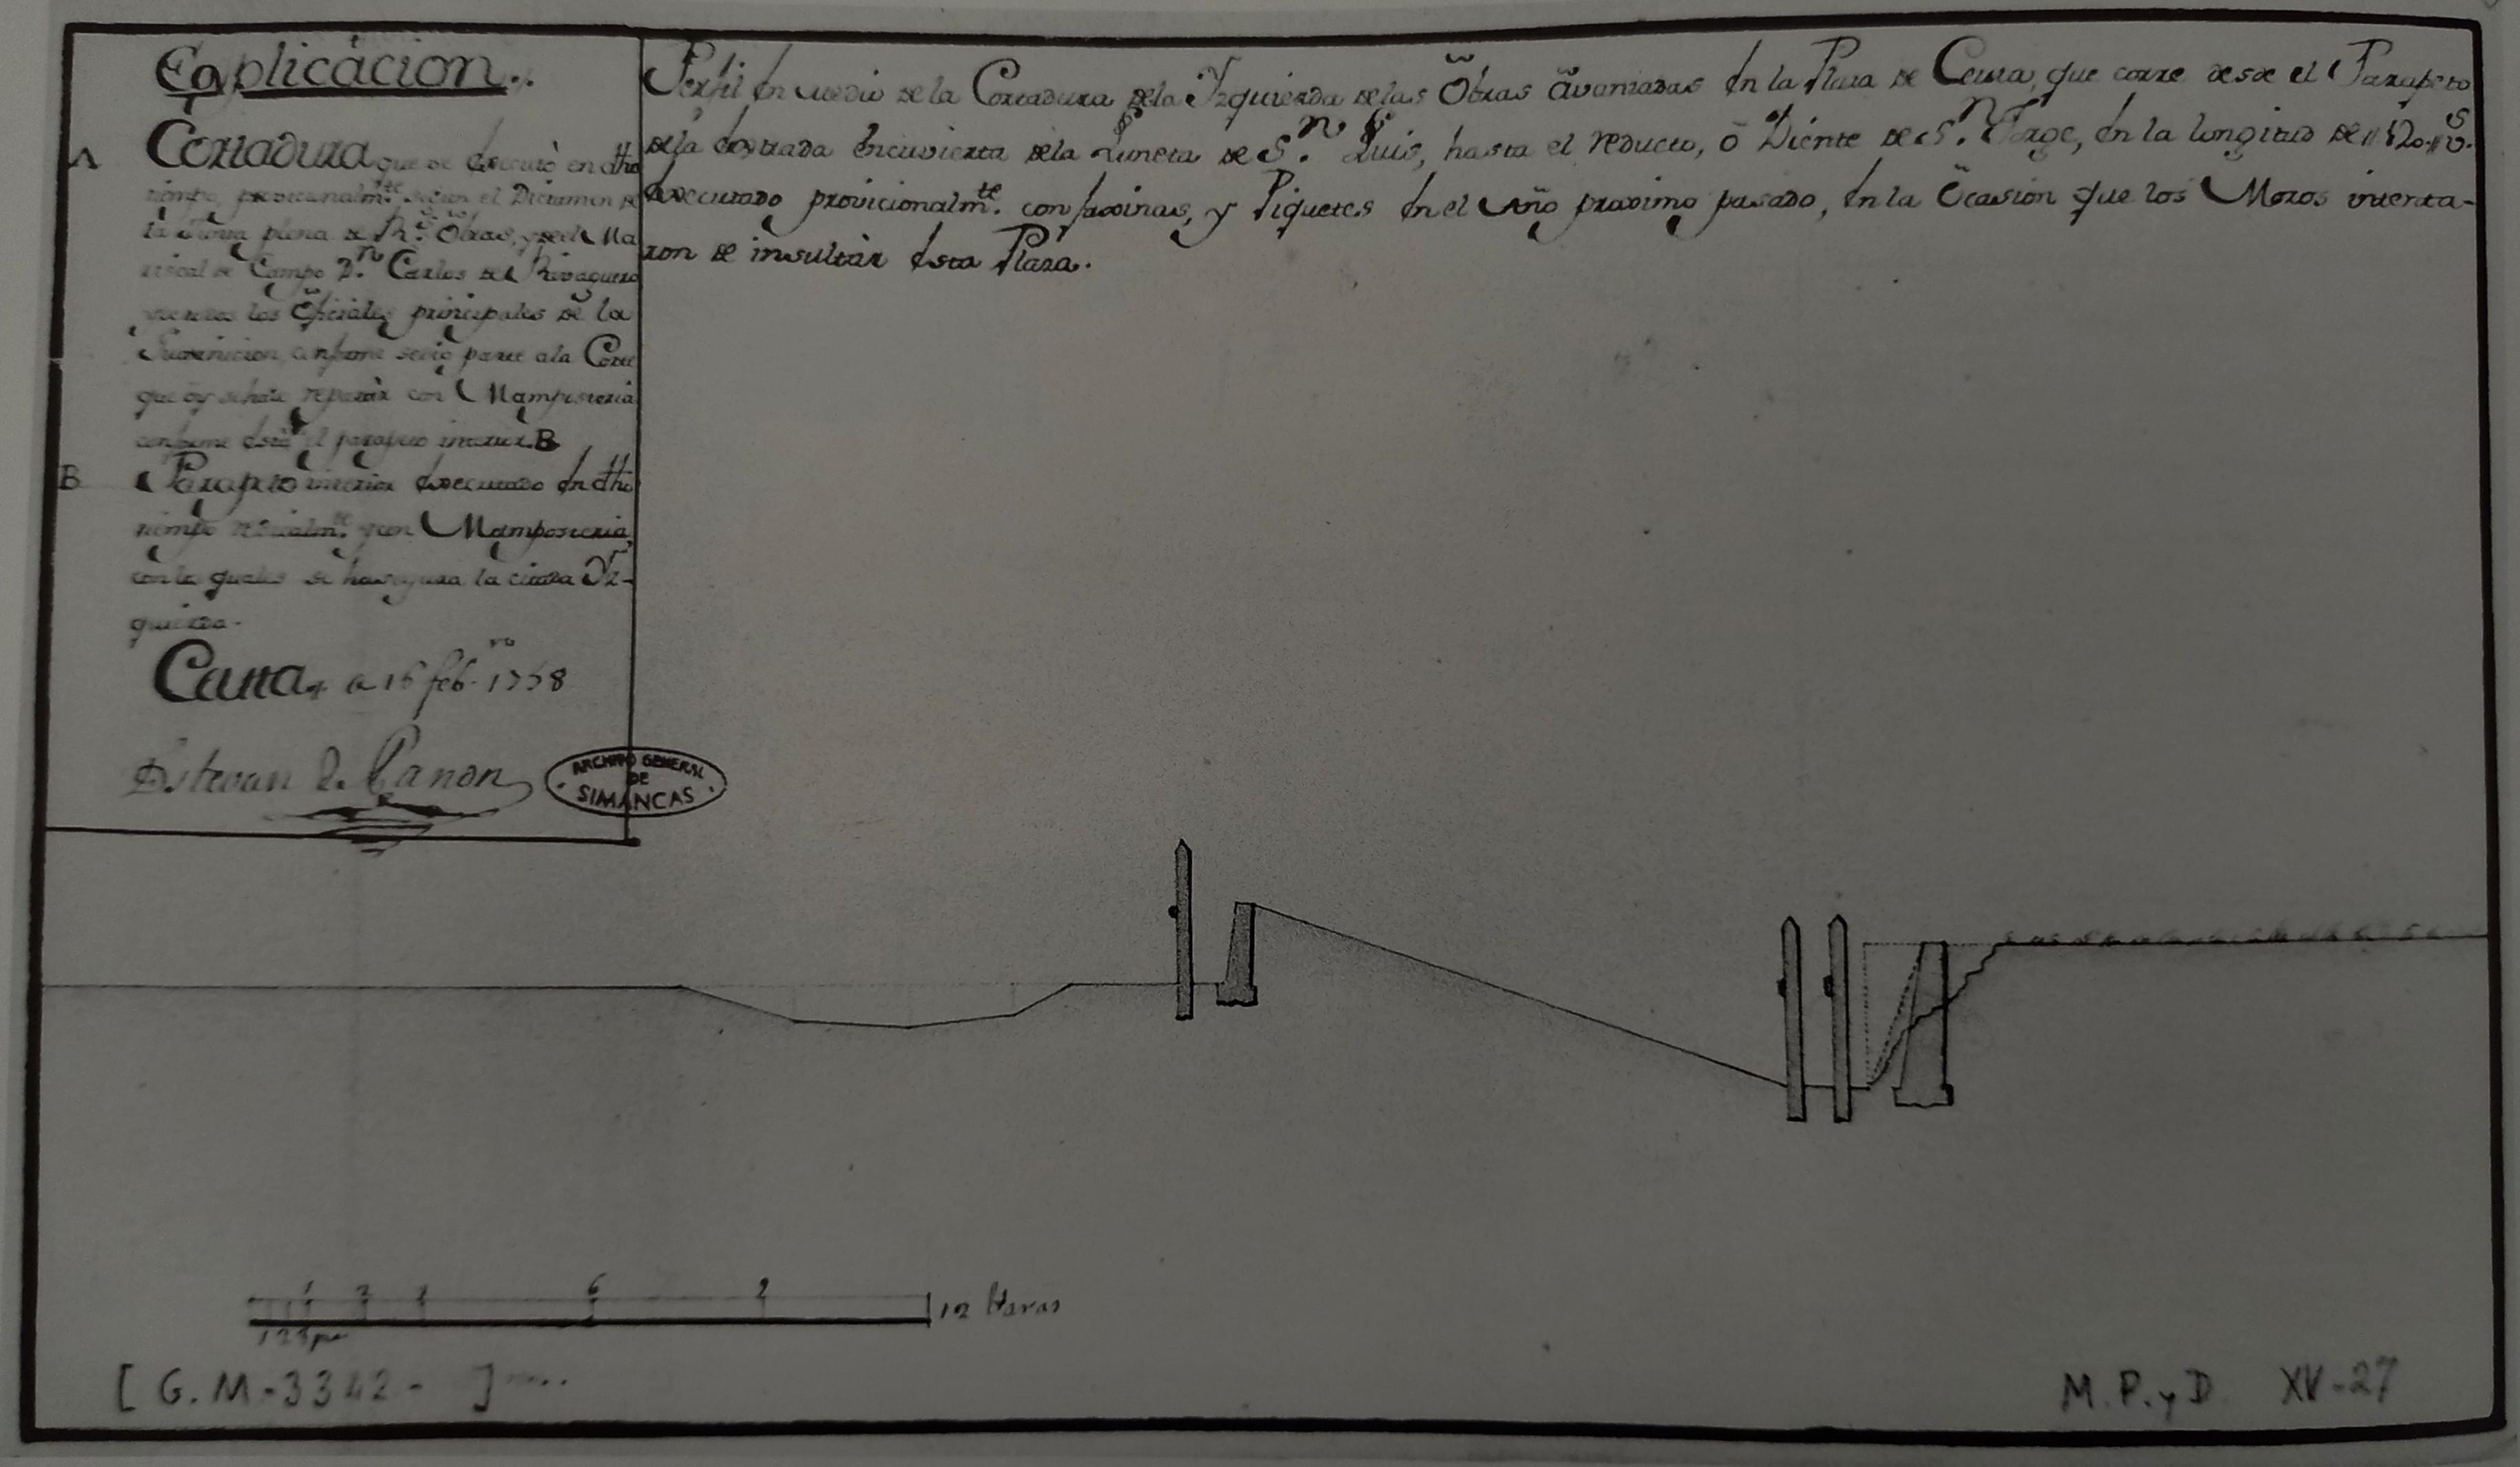 Explicâcion.
A Cortadura que se Executò en dho
tiempo, provicionalmte. segun el Dictamen de
la Junta plena de Rs. Obras, y del Ma
riscal de Campo Dn. Carlos de Rivaguero
los Õficiales principales de la
Guarnicion, conforme se dio parte ala Corte
que òy se hade reparàr con Mamposteria
conforme està el parapeto interior. B
B Parapeto interior Executado En dho
tiempo mte. y con Mamposteria,
con lo quales se hasegura la citada Yz-
quierda.
Ceuta, a 16 febro. 1758
Estevan de Panon
ARCHIVO GENERAL
DE
SIMANCAS
Perfil En medio de la Cortadura dela Yzquierda delas Õbras ãvanzadas En la Plaza de Ceuta, que corre desde el Parapeto
dela Entrada Encuvierta dela Luneta de Sn. Luis, hasta el reducto, ò Diente de Sn. Jorge, En la longitud de 120 vs.
Executado provicionalmte. con faxinas, y Piquetes En el Año proximo pasado, En la Õcasion que los Moros intenta-
ron de insultàr Esta Plaza.
1 2 3 6 9 12 Varas
1 2 3 p
[G.M-3342- ]
M.P.y D. XV-27